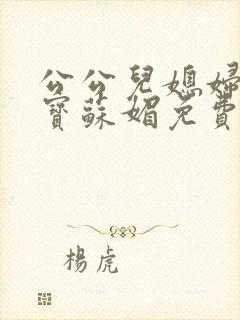 公公兒媳婦
寶蘇媚免費
楊虎